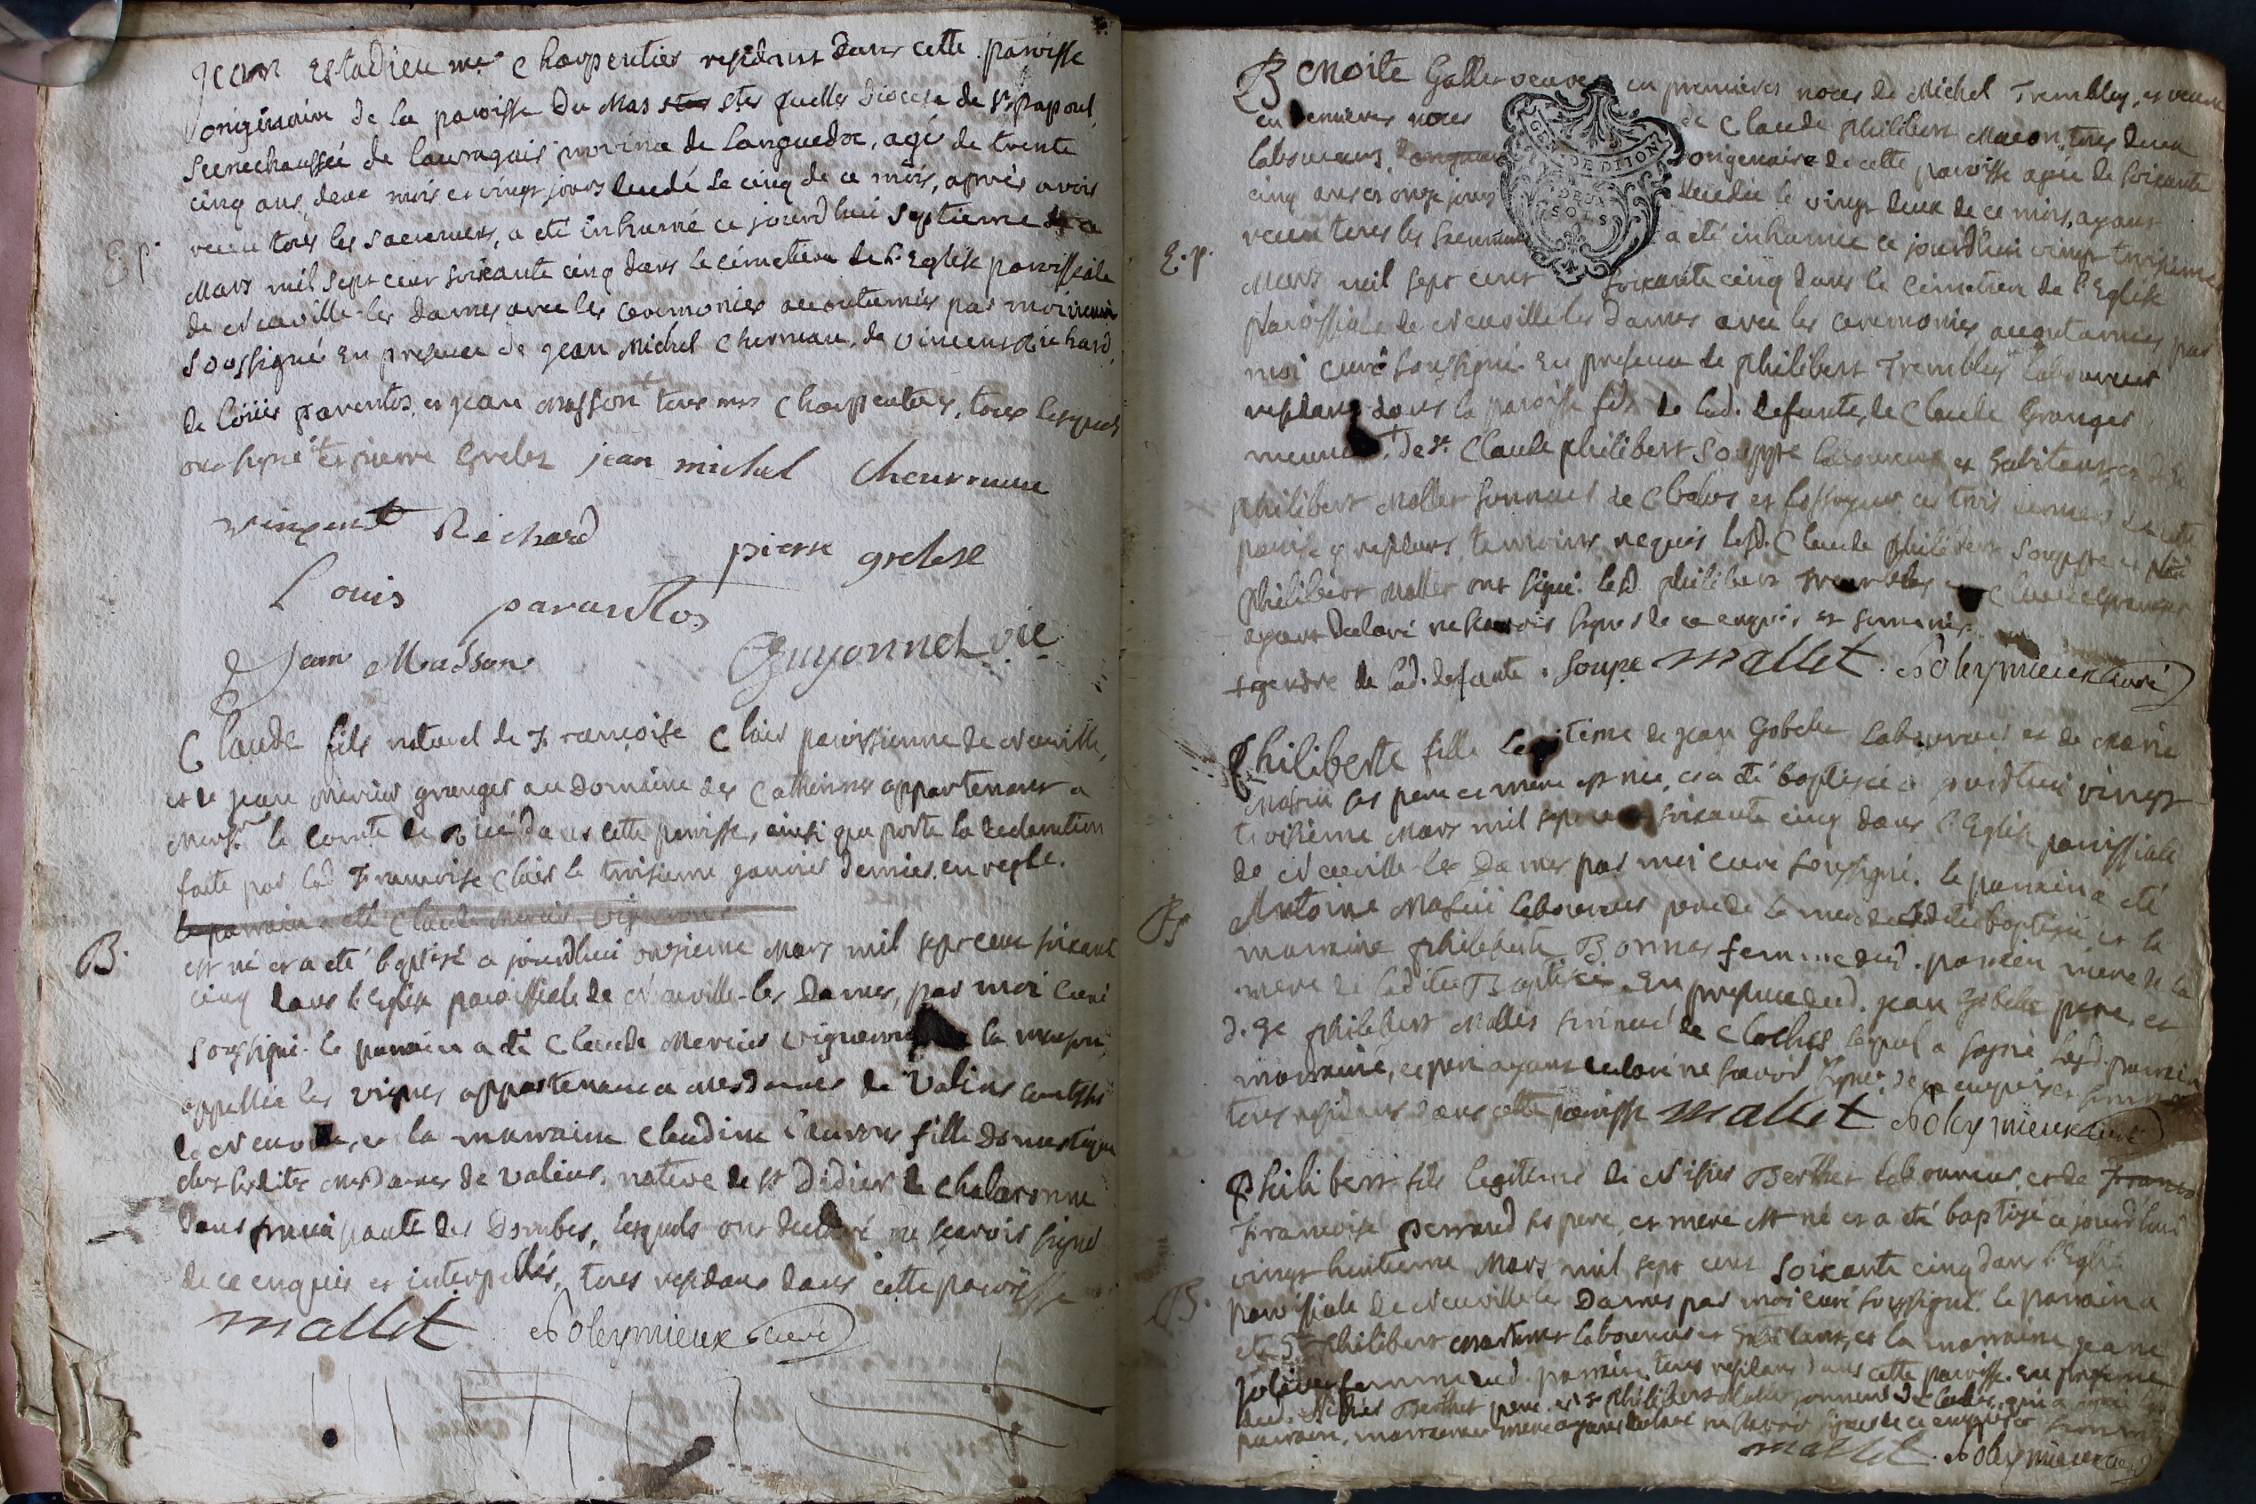 Jean Estadieu me Charpentier residant dans cette paroisse
originaire de la paroisse du Mas stes puelles diocese de st papoul
Senechaussée de lauragais province de Languedoc, agé de trente
cinq ans, deux mois et vingt jours decedé le cinq de ce mois, après avoir
receu tous les sacremens, a été inhumé ce jourdhui septieme
E p.
Mars mil sept cent soixante cinq dans le cimetiere de l'Eglise paroissiale
de Neuville-les dames avec les ceremonies accoutumées par moi vicaire
Soussigné En presence de jean Michel Cheureau, de vincent Richard,
de Loüis parentos, et jean Masson tous mes Charpentiers, tous lesquels
ont signé et pierre Grelet jean michel
vincent Richard
pierre
Louis
Jean Masson
Guyonnet vic
Claude fils naturel de Françoise Clair paroissienne de Neuville,
et de jean Mercier granger au domaine des Cathérines appartenant a
Monsr le Comte de dans cette paroisse, ainsi que porte la declaration
faite par lad Françoise Clair le troisieme janvier dernier, en regle.
le parrain a été Claude Mercier vigneron
B.
est né et a été baptisé a jourdhui onzieme Mars mil sept cent soixante
cinq dans l'Eglise paroissiale de Neuville-les Dames, par moi curé
soussigné. le parrain a été Claude Mercier vigneron la maison
appellée les vignes appartenance a mesdames de Valins comtesses
de Neuville, et la marraine Claudine fille domestique
chez lesdites mesdames de Valins, native de st Didier de Chalaronne
dans principauté des Dombes, lesquels ont declaré ne scavoir signer
de ce enquis et interpellés, tous residans dans cette paroisse
mallet Poleymieux curé
Benoite Gallet veuve en premieres noces de Michel Trembley, et veuve
en dernieres noces de Claude philibert Maçon, tous deux
laboureurs originaire de cette paroisse agée de soixante
cinq ans et onze jours decedée le vingt deux de ce mois, ayant
GEN. DE DIJON
DEUX
SOLS
receu tous les sacremens a été inhumée ce jourdhui vingt troisieme
E. p.
Mars mil sept cent soixante cinq dans le cimetiere de l'Eglise
paroissiale de Neuville les Dames avec les ceremonies accoutumées par
moi curé soussigné. En presence de philibert Trembley laboureur
residant dans la paroisse fils de lad. defunte, de Claude Granger
meunier + de sr. Claude philibert Souppe laboureur et habitant, et de
philibert Mallet sonneur de Cloches et fossoyeur ces trois derniers de cette
paroisse y residans, temoins requis lesd. Claude philibert Souppe et
philibert Mallet ont signé. lesd. philibert Trembley et Claude Granger
ayant declaré ne scavoir signer de ce enquis et sommés.
+ gendre de lad. defunte. soupe mallet. Poleymieux curé
Philiberte fille legitime de jean Gobelet laboureur et de Marie
ses pere et mere est née, et a été baptisée a jourdhui vingt
troisieme Mars mil sept cent soixante cinq dans l'Eglise paroissiale
de Neuville-les Dames par moi curé soussigné. le parrain a été
B
Antoine laboureur pere de la mere de ladite baptisée, et la
marraine philiberte Bonnet femme dud. parrein mere de la
mere de ladite Baptisée. En presence dud. jean Gobelet pere, et
de philibert Mallet sonneur de Cloches, lequel a signé lesd. parrein
marraine, et pere ayant declaré ne scavoir signer de ce enquis et sommés
tous residans dans cette paroisse mallet Poleymieux curé
Philibert fils legitime de Nisier Berthet laboureur, et de
Françoise perraud ses pere, et mere est né et a été baptizé ce jourdhui
vingt huitieme Mars mil sept cent soixante cinq dans l'Eglise
B.
paroissiale de Neuville les Dames par moi curé soussigné. le parrain a
été sr philibert laboureur et habitant, et la marraine jeane
femme dud. parrain, tous residans dans cette paroisse. En presence
dud. Nisier Berthet pere, et sr philibert Mallet sonneur de cloches, qui a signé
parrain, marraine mere ayans declaré ne scavoir signer de ce enquis et sommés
mallet. Poleymieux curé